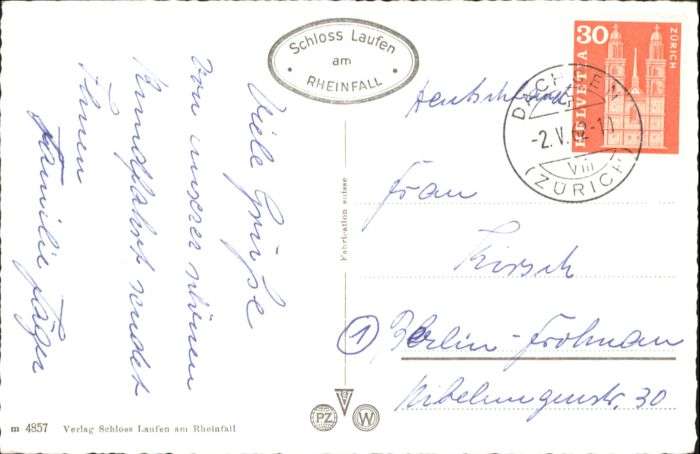 Schloss Laufen
am
RHEINFALL
Viele Grüße
von unserer schönen
Rundfahrt sendet
Ihnen
Familie Jäger
Fabrication suisse
30
HELVETIA
ZÜRICH
DACHSEN
-2.V.62-17
VIII
(ZÜRICH)
Deutschland
Frau
Kirsch
1 Berlin-Frohnau
Nibelungenstr. 30
PZ
W
m 4857 Verlag Schloss Laufen am Rheinfall